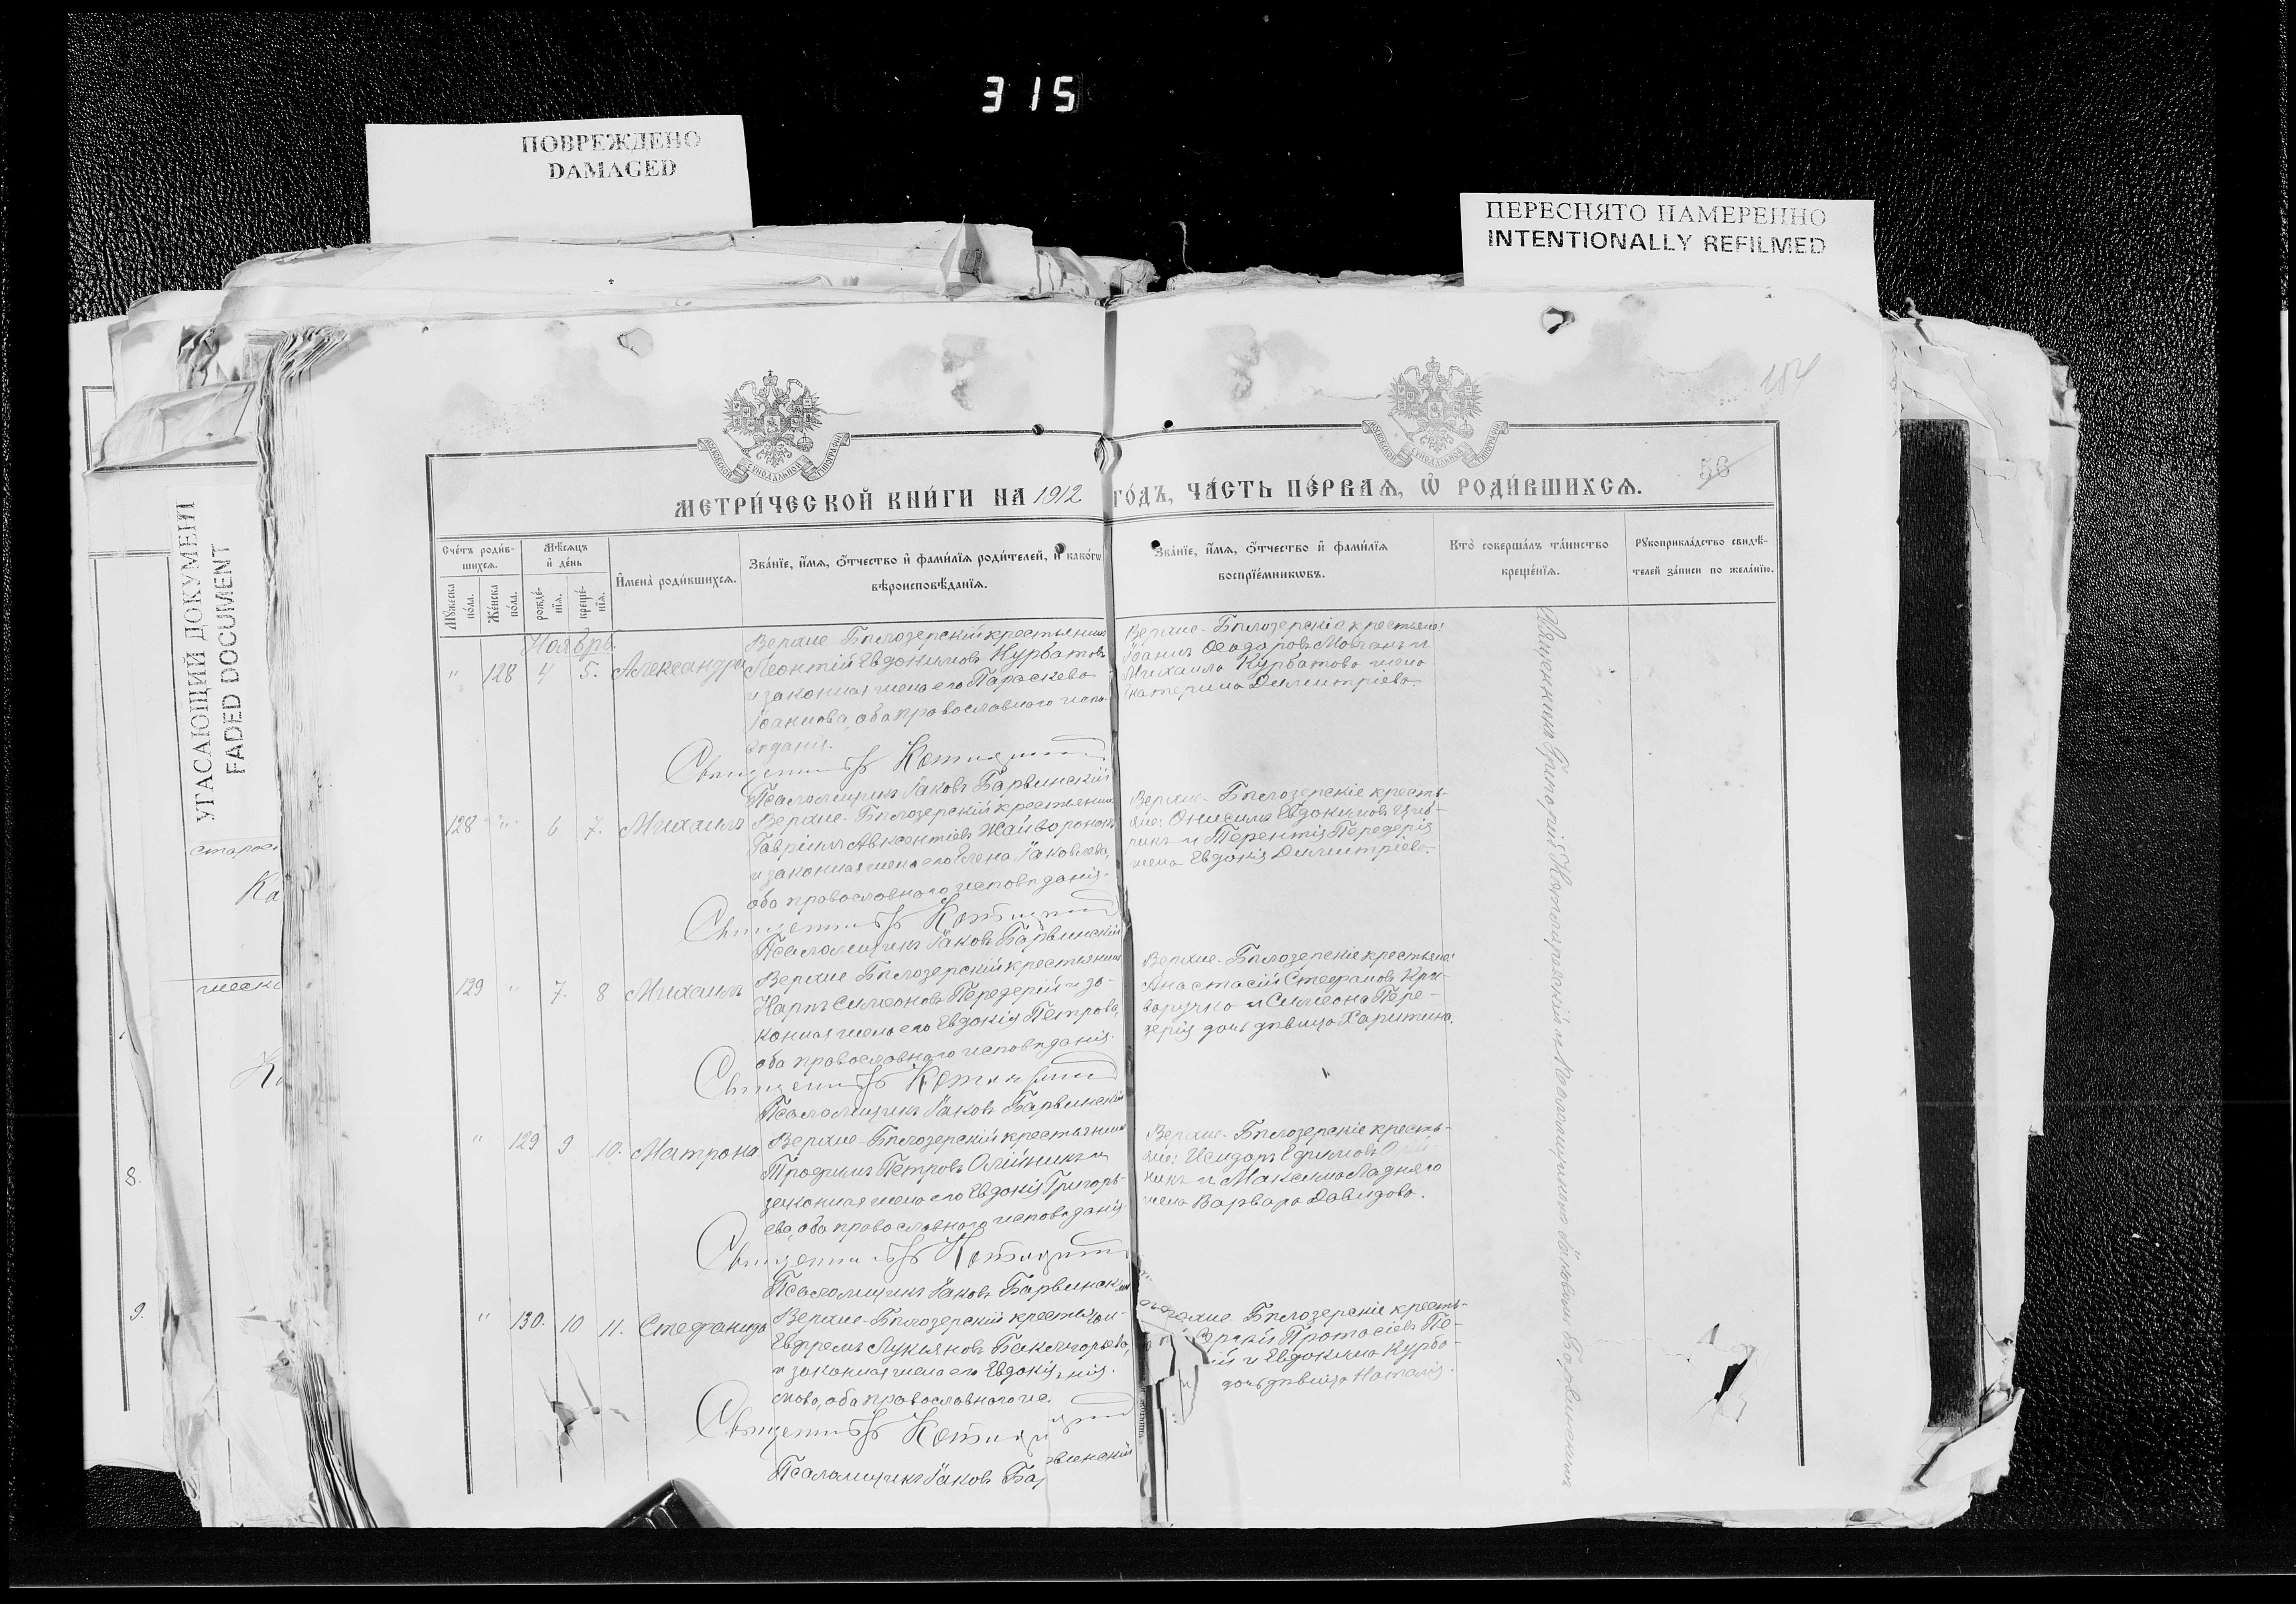 315
ПОВРЕЖДЕНО
DAMAGED
ПЕРЕСНЯТО НАМЕРЕННО
INTENTIONALLY REFILMED
УГАСАЮЩИЙ ДОКУМЕНТ
FADED DOCUMENT
Ка
8.
9.
56
МЕТРИ́ЧЕСКОЙ КНИ́ГИ НА 1912 ГО́ДЪ, ЧА́СТЬ ПЕ́РВАѦ, Ѡ РОДИ́ВШИХСѦ.
Сче́тъ роди́в-
шихсѧ.
Мꙋ́жеска
по́ла.
Же́нска
по́ла.
Мѣ́сѧцъ
и де́нь
рожде́-
нїѧ.
креще́-
нїѧ.
Имена̀ роди́вшихсѧ.
Зва́нїе, и́мѧ, о́тчество и фами́лїѧ роди́телей, и како́гѡ
вѣроисповѣ́данїѧ.
Зва́нїе, и́мѧ, о́тчество и фами́лїѧ
воспрїе́мникѡвъ.
Кто̀ соверша́лъ та́инство
креще́нїѧ.
Рꙋкоприкла́дство свидѣ́-
телей за́писи по жела́нїю.
Ноябрь.
" 128 4 5. Александра
Верхне-Бѣлозерскій крестьянинъ
Леонтій Евдокимовъ Курбатовъ
и законная жена его Параскева
Іоаннова, оба православнаго испо-
вѣданія.
Священникъ
Псаломщикъ Іаковъ Барвинскій
Верхне-Бѣлозерскіе крестьяне:
Іоаннъ Ѳеодоровъ и
Михаила Курбатова жена
Екатерина Димитріева.
128 " 6 7. Михаилъ
Верхне-Бѣлозерскій крестьянинъ
Гавріилъ Авксентіевъ Жайворонокъ
и законная жена его Елена Іаковлева,
оба православнаго исповѣданія.
Священникъ
Псаломщикъ Іаковъ Барвинскій
Верхне-Бѣлозерскіе кресть-
яне: Онисимъ Евдокимовъ
и Терентія Передерія
жена Евдокія Димитріева.
129 " 7. 8 Михаилъ
Верхне-Бѣлозерскій крестьянинъ
Карпъ Симеоновъ Передерій и за-
конная жена его Евдокія Петрова,
оба православнаго исповѣданія.
Священникъ
Псаломщикъ Іаковъ Барвинскій
Верхне-Бѣлозерскіе крестьяне:
Анастасій Стефановъ Кри-
воручко и Симеона Пере-
дерія дочь дѣвица Харитина.
" 129 9 10. Матрона
Верхне-Бѣлозерскій крестьянинъ
Трофимъ Петровъ Олійникъ и
законная жена его Евдокія Григорь-
ева, оба православнаго исповѣданія.
Священникъ
Псаломщикъ Іаковъ Барвинскій
Верхне-Бѣлозерскіе кресть-
яне: Исидоръ Ефимовъ Олій-
никъ и Максима Ладняго
жена Варвара Давидова.
" 130. 10 11. Стефанида
Верхне-Бѣлозерскій
Ефремъ Лукьяновъ
и законная жена его Евдокія
оба православнаго ис
Священникъ
Псаломщикъ Іаковъ Бар винскій
Бѣлозерскіе кресть-
Протасіевъ Пе-
ій и Евдокима Курба-
дочь дѣвица Наталія.
Священникъ Григорій и Псаломщикъ Іаковъ Барвинскій